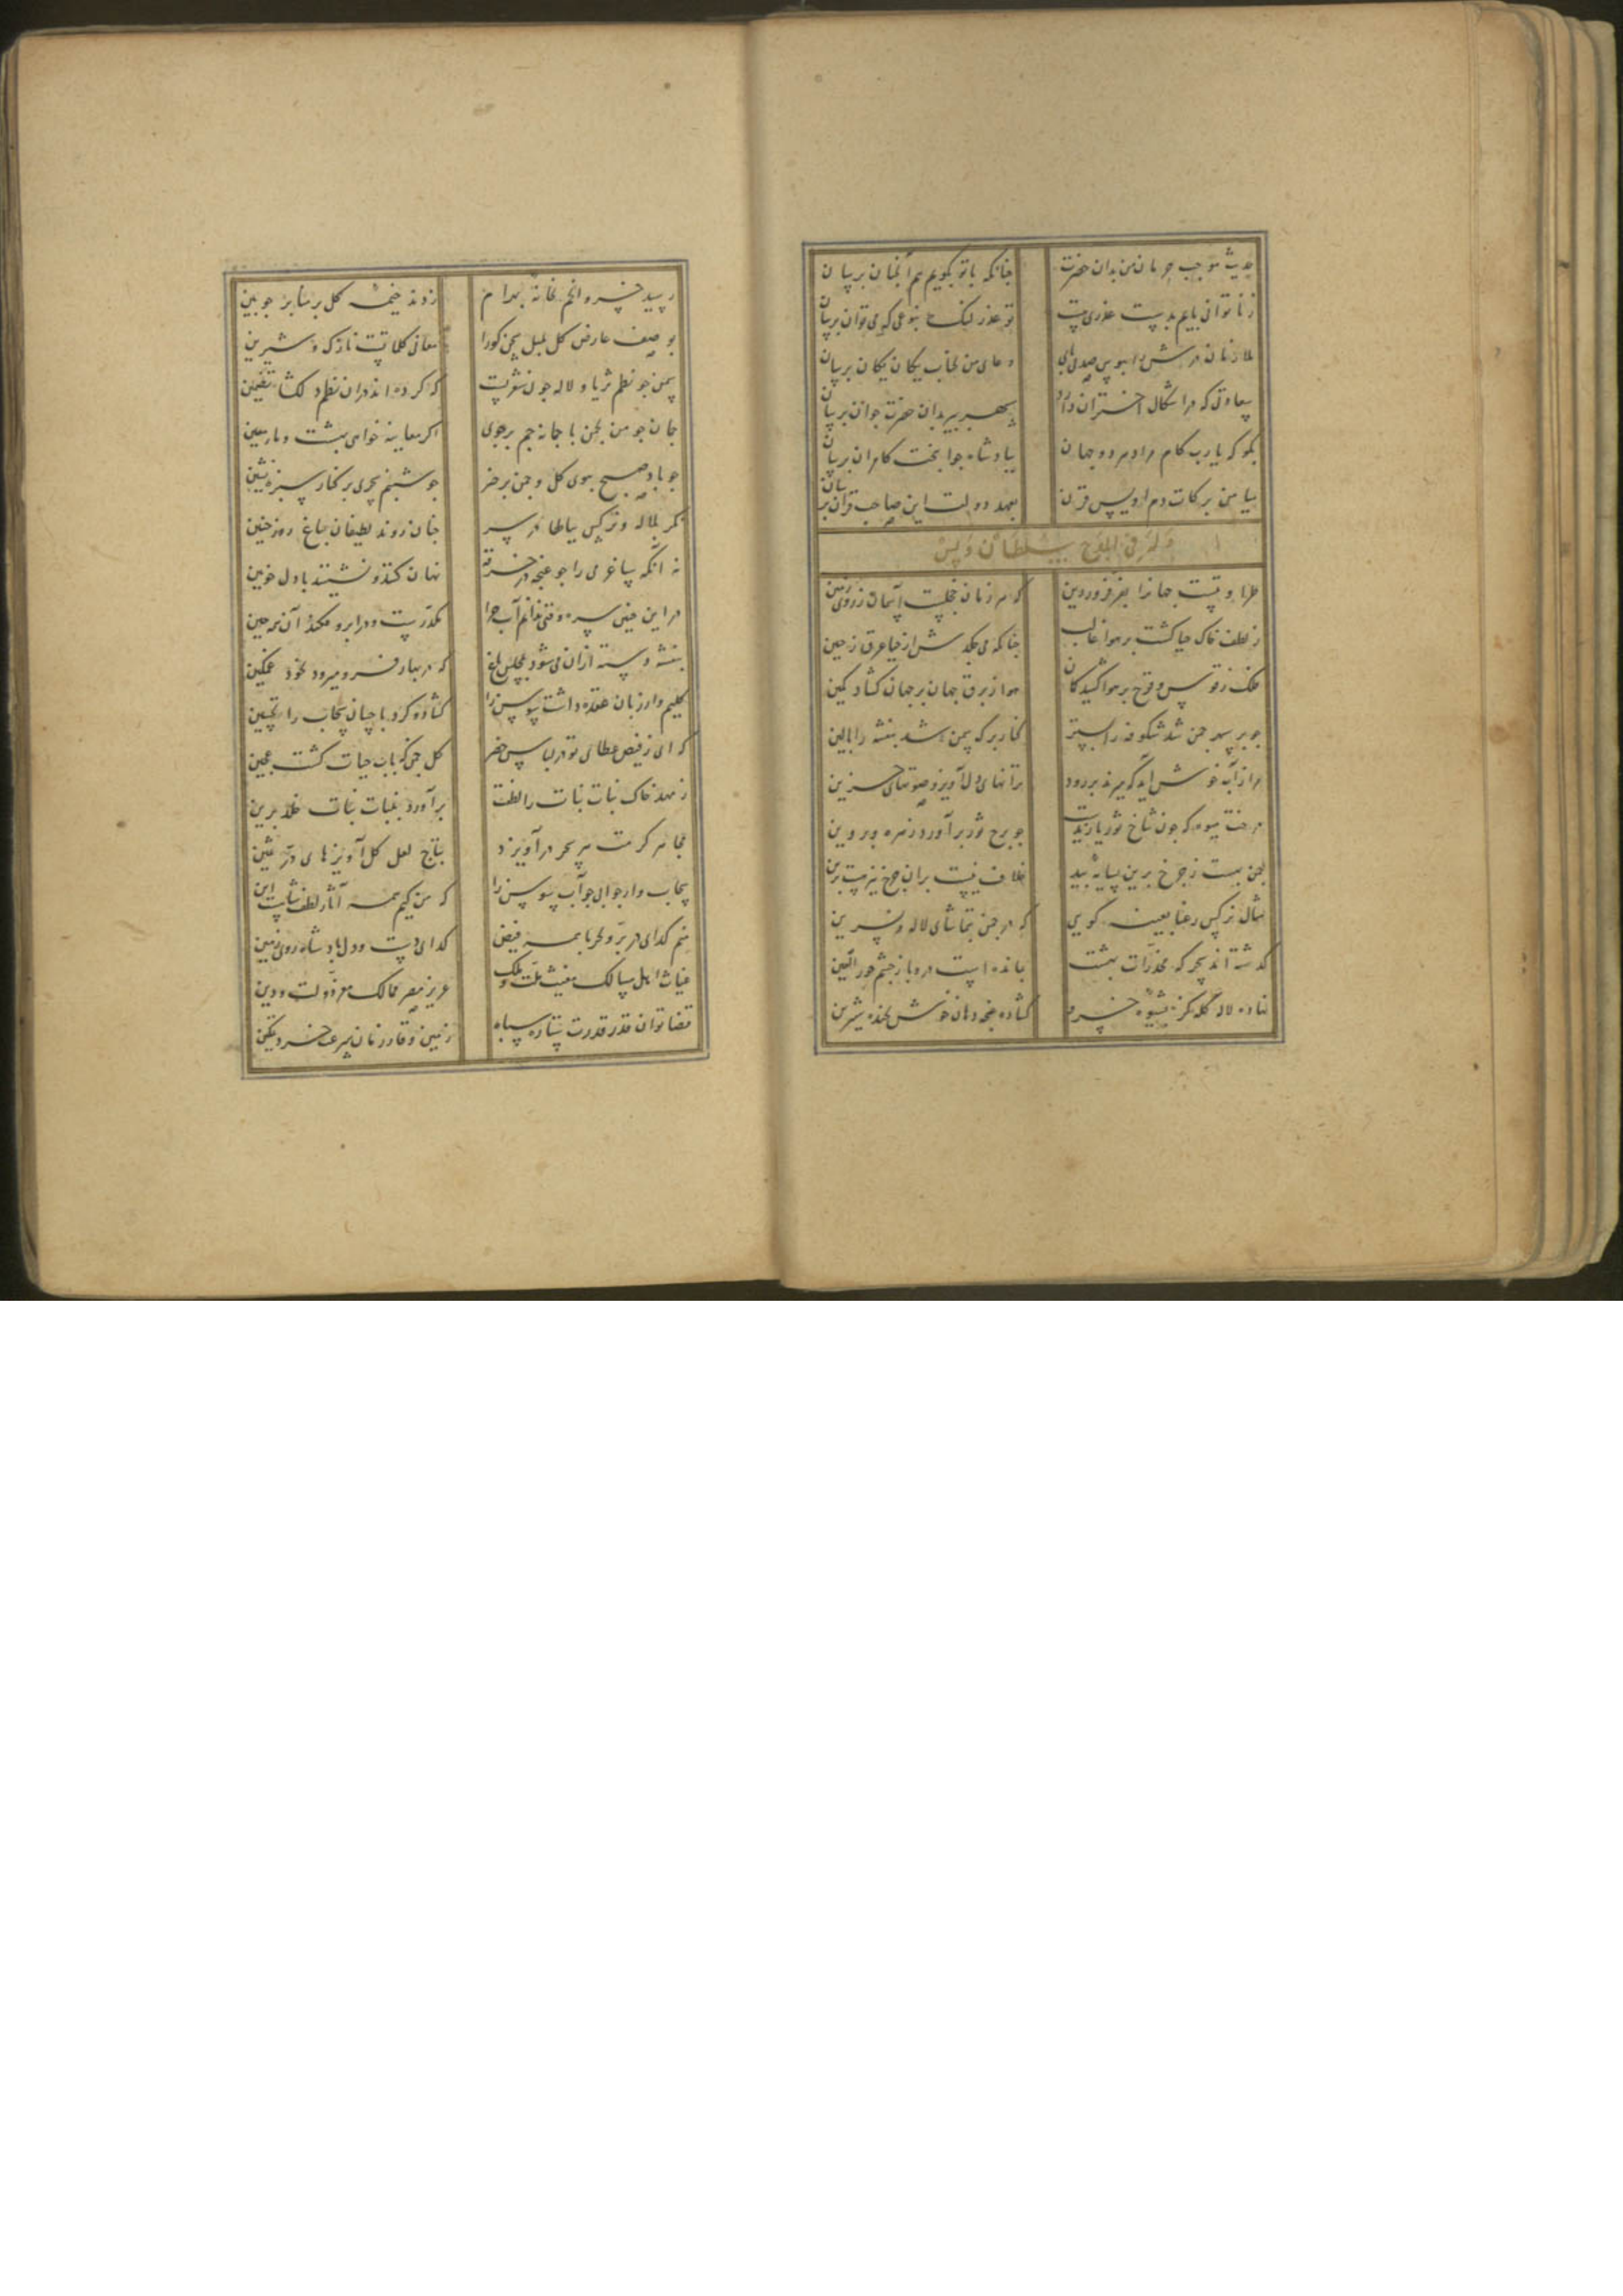 حدیث موجب حرمان من بدان حضرت جنانکه باتو بگویم هم آنجنان برسان
زناتوانی بایم بدست عذری هست تو عذر لنک بنوعی که می توان برسان
ملازمان درش را ببوس دعای من بجناب یکان یکان برسان
سعادتی که در اشکال اختران دارد سپهر پیر بدان حضرت جوان برسان
بگو که یارب کام مراد هر دو جهان بپادشاه جوانبخت کامران برسان
میامن برکات دم اویس قرن بعهد دولت این صاحب قران برسان
وله فی المدح سلطان ویس
طراوتیست جهانرا بفر فروردین که هر زمان خجلست آسمان زروی زمین
زلطف خاک حیا کشت بر هوا غالب جنانکه می جکدش از حیا عرق زجبین
فلک زقوس و قزح بر هوا کشید کمان هوا زبرق جهان بر جهان کشاد کمین
جو بر سپهر جمن شد شکوفه را بستر کنار برکه سمن شد بنفشه را بالین
مرا زآب خوش آید که میزند بر رود ترانهای دل آویز و صوتهای حزین
درخت میوه که جون شاخ ثور جو برج ثور برآورد زهره و پروین
جمن بهست زجرخ برین بسایه بید خلاف نیست بران جرخ نیز هست برین
مثال نرکس رعنا بعینه کویی که در جمن بتماشای لاله و نسرین
کذشته اند بحرکه مخدرات بهشت بمانده است درو باز جشم حور العین
نهاده لاله کله کژ بشیوه خسرو کشاده غنجه دهان خوش بخنده شیرین
رسید خسرو انجم بخانه بهرام زدند خیمه کل بر منابر جوبین
بوصف عارض کل بلبل سخن کورا معانی کلماتست نازک و شیرین
سمن جو نظم ثریا و لاله جون شعریست که کرده اند دران نظم دلکشا تضمین
جمان جو من بجمن با جمانه جم بر جوی اکر معاینه خواهی بهشت و ماء معین
جو باد صبح ببوی کل و جمن برخیز جو شبنم سحری بر کنار سبزه نشین
مکر بلاله و نرکس بساطها در سر جنان روند لطیفان بباغ روز جنین
نه آنکه ساغر می را جو غنجه در خرقه نهان کنند و نشینند با دل خونین
در این جنین سره وقتی ندانم آب جرا مکدرست و در ابرو فکند آن همه جین
بنفشه دسته ازان می شود بمجلس باغ که در بهار فرو میرود بخود غمکین
کلیم وار زبان عقده داشت سوسن را کشاده کرد باحسان سحاب را تحسین
که ای زفیض عطای تو در لباس خضر کل جمن که بآب حیات کشت عجین
زمهد خاک نبات نبات را لطفت برآورد بنبات نبات خلد برین
بتاج لعل کل آویزهای در ثمین
سحاب وار جوابی جو آب سوسن را که من کیم همه آثار لطف شاهست این
منم کدای در بر و بحر با همه فیض کدای دست و دل پادشاه روی زمین
غیاث اهل ممالک مغیث ملت و ملک عزیز مصر ممالک معز دولت و دین
قضا توان قدر قدرت ستاره سپاه زمین وقار زمان سرعت خسرو تمکین